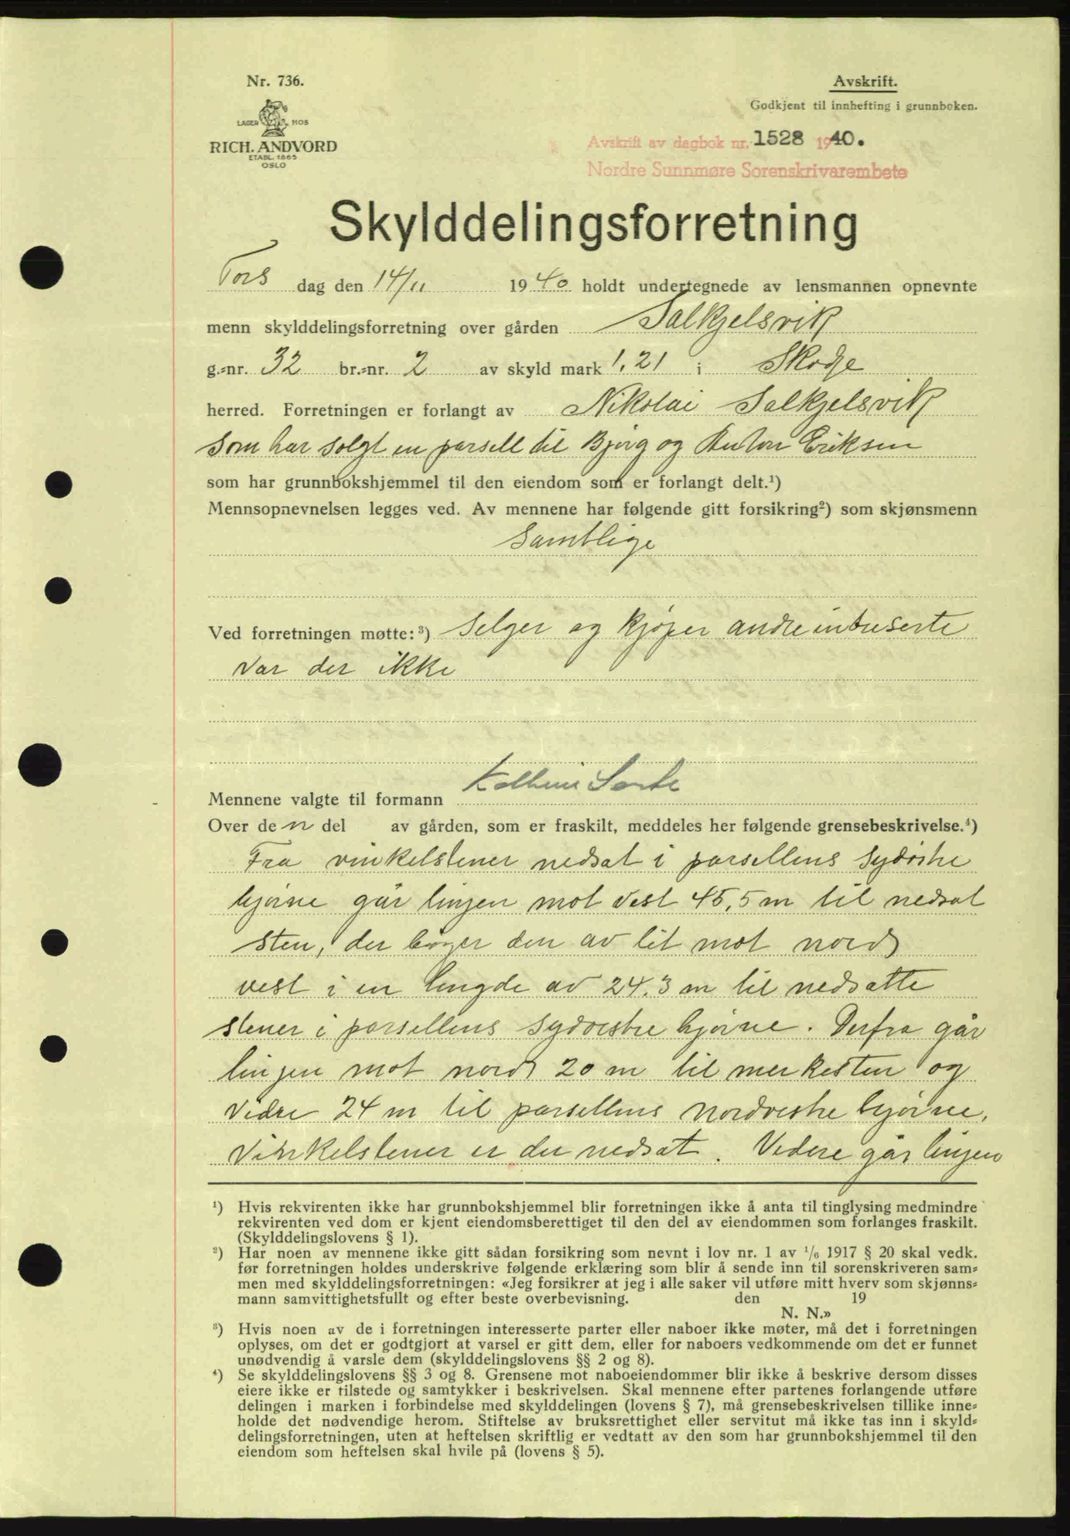 Nr. 736.
LAGER HOS
RICH. ANDVORD
ETABL. 1865
OSLO
Avskrift.
Godkjent til innhefting i grunnboken.
Avskrift av dagbok nr. 1528 1940.
Nordre Sunnmøre Sorenskrivarembete
Skylddelingsforretning
Tors dag den 14/11 1940 holdt undertegnede av lensmannen opnevnte
menn skylddelingsforretning over gården Salkjelsvik
g.-nr. 32 br.-nr. 2 av skyld mark 1,21 i Skodje
herred. Forretningen er forlangt av Nikolai Salkjelsvik
som har solgt en parsell til Bjørg og Anton Eriksen
som har grunnbokshjemmel til den eiendom som er forlangt delt.¹)
Mennsopnevnelsen legges ved. Av mennene har følgende gitt forsikring²) som skjønsmenn
Samtlige
Ved forretningen møtte:³) Selger og kjøper andre intreserte
var der ikke
Mennene valgte til formann
Over den del av gården, som er fraskilt, meddeles her følgende grensebeskrivelse.⁴)
Fra vinkelstener nedsat i parsellens sydøstre
hjørne går linjen mot vest 45,5 m til nedsat
sten, der bøger den av lit mot nord
vest i en lengde av 24.3 m til nedsatte
stener i parsellens sydvestre hjørne. Derfra går
linjen mot nord 20 m til merkesten og
vidre 24 m til parsellens nordvestre hjørne,
Vinkelstener er der nedsat. Videre går linjen
¹) Hvis rekvirenten ikke har grunnbokshjemmel blir forretningen ikke å anta til tinglysing medmindre
rekvirenten ved dom er kjent eiendomsberettiget til den del av eiendommen som forlanges fraskilt.
(Skylddelingslovens § 1).
²) Har noen av mennene ikke gitt sådan forsikring som nevnt i lov nr. 1 av 1/6 1917 § 20 skal vedk.
før forretningen holdes underskrive følgende erklæring som blir å sende inn til sorenskriveren sam-
men med skylddelingsforretningen: «Jeg forsikrer at jeg i alle saker vil utføre mitt hverv som skjønns-
mann samvittighetsfullt og efter beste overbevisning. den 19
N. N.»
³) Hvis noen av de i forretningen interesserte parter eller naboer ikke møter, må det i forretningen
oplyses, om det er godtgjort at varsel er gitt dem, eller for naboers vedkommende om det er funnet
unødvendig å varsle dem (skylddelingslovens §§ 2 og 8).
⁴) Se skylddelingslovens §§ 3 og 8. Grensene mot naboeiendommer blir ikke å beskrive dersom disses
eiere ikke er tilstede og samtykker i beskrivelsen. Skal mennene efter partenes forlangende utføre
delingen i marken i forbindelse med skylddelingen (lovens § 7), må grensebeskrivelsen tillike inne-
holde det nødvendige herom. Stiftelse av bruksrettighet eller servitut må ikke tas inn i skyld-
delingsforretningen, uten at heftelsen skriftlig er vedtatt av den som har grunnbokshjemmel til den
eiendom som heftelsen skal hvile på (lovens § 5).